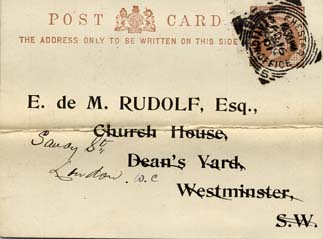 POST CARD
THE ADDRESS ONLY TO BE WRITTEN ON THIS SIDE
E. de M. RUDOLF, Esq.,
Church House,
Savoy St,
Dean's Yard,
London. W.C
Westminster,
S.W.